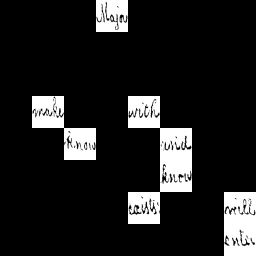 Major
make with
know and
know
exists will
enter